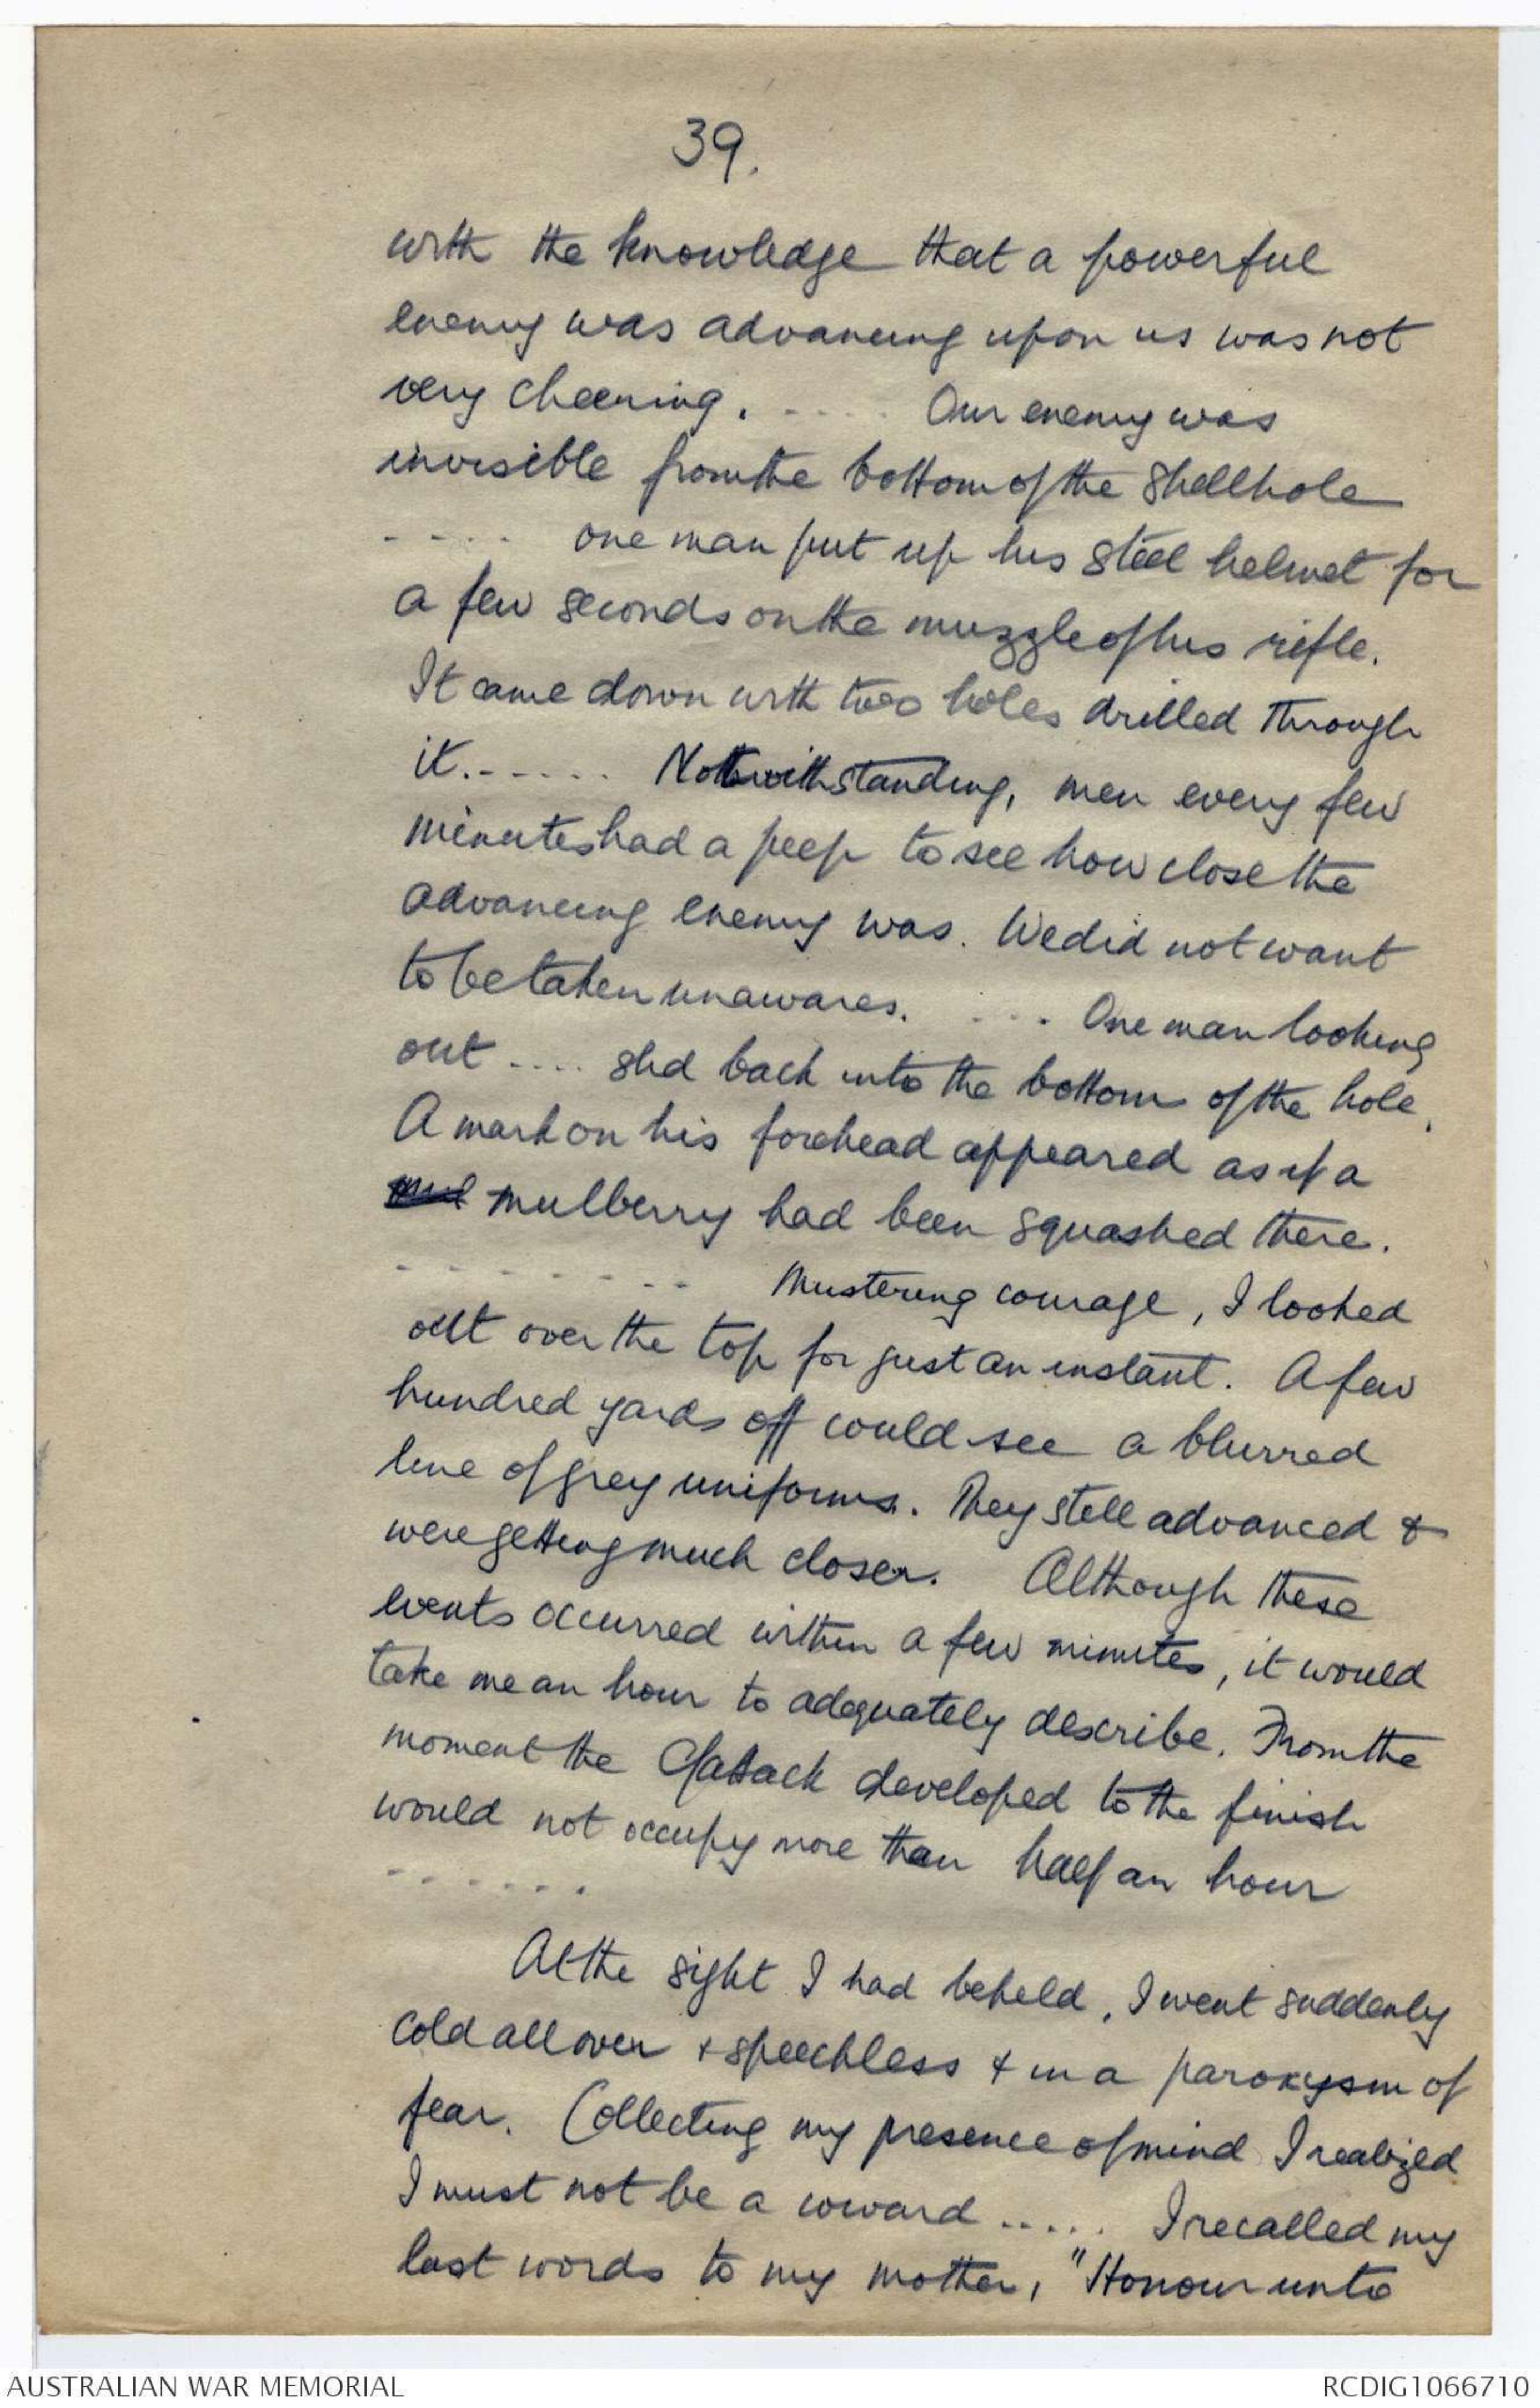 39.
with the knowledge that a powerful
enemy was advancing upon us was not
very cheering. . . . . . Our enemy was
invisible from the bottom of the shellhole
. . . . . one man put up his steel helmet for
a few seconds on the muzzle of his rifle.
It came down with two holes drilled through
it. . . . . . . Notwithstanding, men every few
minutes had a peep to see how close the
advancing enemy was. We did not want
to be taken unawares. . . . . One man looking
out . . . . slid back into the bottom of the hole.
A mark on his forehead appeared as if a
mulberry had been squashed there.
- - - - - - - - Mustering courage, I looked
out over the top for just an instant. A few
hundred yards off could see a blurred
line of grey uniforms. They still advanced &
were getting much closer. Although these
events occurred within a few minutes, it would
take me an hour to adequately describe. From the
moment the C/attack developed to the finish
would not occupy more than half an hour
- - - - - -
At the sight I had beheld, I went suddenly
cold all over & speechless & in a paroxysm of
fear. Collecting my presence of mind I realized
I must not be a coward . . . . . I recalled my
last words to my mother, "Honour unto
AUSTRALIAN WAR MEMORIAL
RCDIG1066710